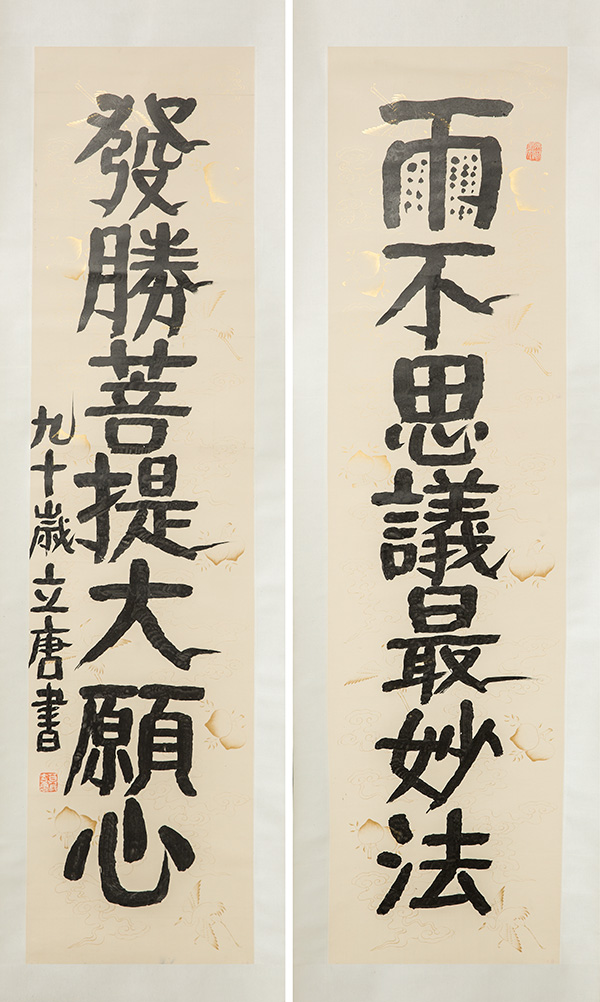 雨不思議最妙法
發勝菩提大願心
九十歲立唐書